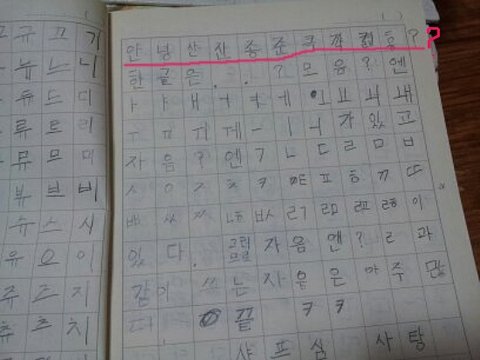 규 끄 기
뉴 느 니
듀 드 디
류 르 리
뮤 므 미
뷰 브 비
슈 스 시
유 으 이
쥬 즈 지
츄 츠 치
한글은 . . ? 모음? 엔
ㅏ ㅑ ㅐ ㅓ ㅕ ㅔ
ㅜ ㅠ ㅟ ㅞ ㅡ ㅣ ㅢ 가 있고
자음? 엔 ㄱ ㄴ ㄷ ㄹ ㅁ ㅂ
ㅅ ㅇ ㅈ ㅊ ㅋ ㅌ ㅍ ㅎ ㄲ ㄸ
ㅃ ㅆ ㅉ ㄶ ㅄ ㄺ ㄻ ㄼ ㅀ 이
있다. 그리므로 자음엔? ㄹ 과
같이 쓰는 자음은 아주 많
다 끝 ㅋ ㅋ
샤프심 사탕